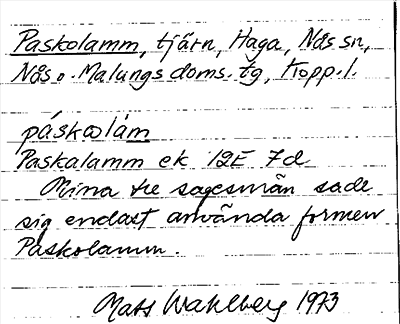 Paskolamm, tjärn, Haga, Nås sn,
Nås o. Malungs doms. tg, Kopp. l.
páskωlám
Paskalamm ek 12E 7d
Mina tre sagesmän sade
sig endast använda formen
Paskolamm.
Mats Wahlberg 1973